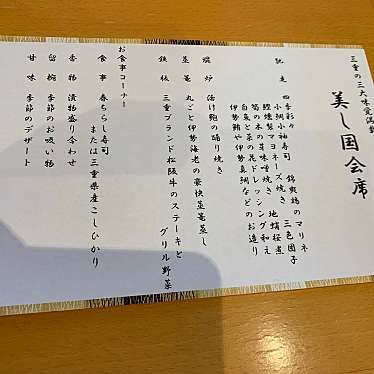 三重の三大味覚満載
美し国会席
馳走 四季彩々 錦爽鶏のマリネ
小鯛小袖寿司 三色団子
鰹燻製マヨネーズ焼き 地蛸桜煮
筍の木の芽味噌焼き
白魚と菜の花ドレッシング和え
伊勢鮪や伊勢真鯛などのお造り
焜炉 活け鮑の踊り焼き
蒸篭 丸ごと伊勢海老の豪快蒸篭蒸し
鉄板 三重ブランド松阪牛のステーキと
グリル野菜
お食事コーナー
食事 春ちらし寿司
または三重県産こしひかり
香物 漬物盛り合わせ
留椀 季節のお吸い物
甘味 季節のデザート